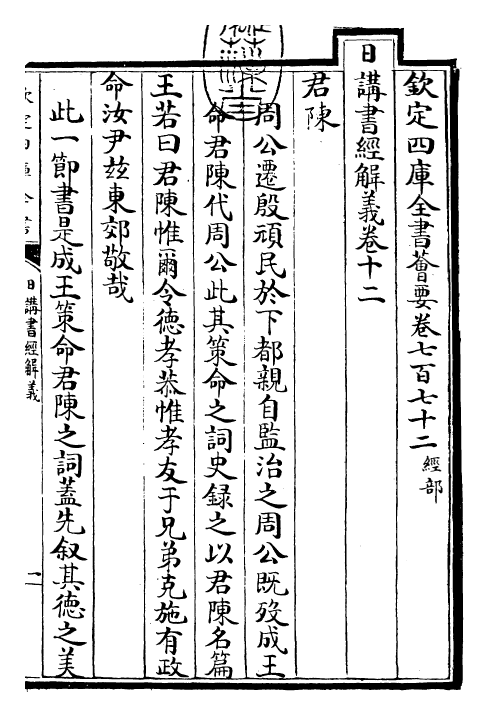 欽定四庫全書薈要卷七百七十二 經部
日講書經解義卷十二
君陳
周公遷殷頑民於下都親自監治之周公既歿成王
命君陳代周公此其策命之詞史録之以君陳名篇
王若曰君陳惟爾令德孝恭惟孝友于兄弟克施有政
命汝尹兹東郊敬哉
此一節書是成王策命君陳之詞蓋先叙其德之美
日講書經解義
一